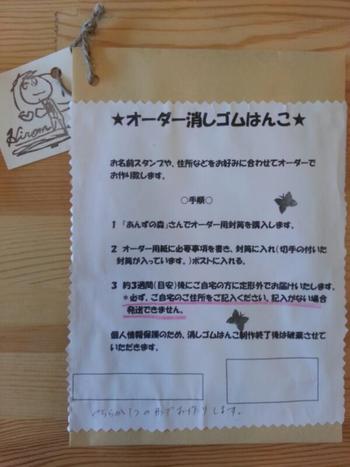 ★オーダー消しゴムはんこ★
お名前スタンプや、住所などをお好みに合わせてオーダーで
お作り致します。
○手順○
1 「あんずの森」さんでオーダー用封筒を購入します。
2 オーダー用紙に必要事項を書き、封筒に入れ(切手の付いた
封筒が入っています。)ポストに入れる。
3 約3週間(目安)後にご自宅の方に定形外でお届けいたします。
*必ず、ご自宅のご住所をご記入ください。記入がない場合
発送できません。
個人情報保護のため、消しゴムはんこ制作終了後は破棄させて
いただきます。
どちらか1つの形でお作りします。